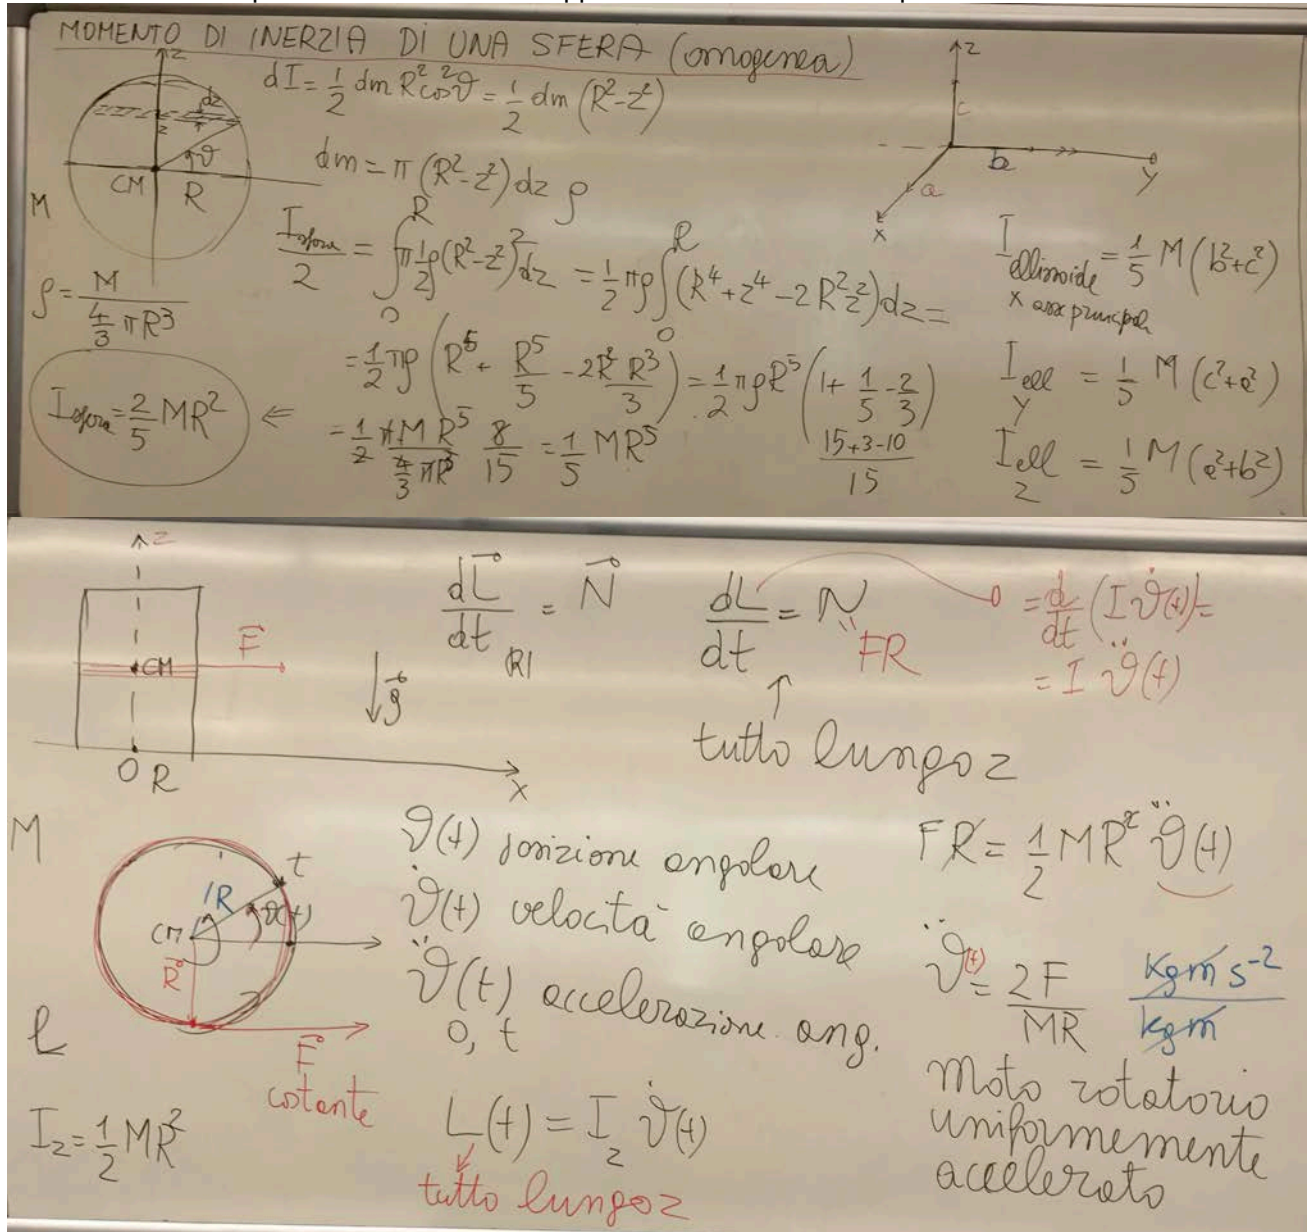 MOMENTO DI INERZIA DI UNA SFERA (omogenea)
z
dz
z
ϑ
CM
R
M
dI = 1/2 dm R² cos²ϑ = 1/2 dm (R²-z²)
dm = π (R²-z²) dz ρ
ρ = M / (4/3 πR³)
I sfera / 2 = ∫₀ᴿ π 1/2 ρ (R²-z²)² dz = 1/2 πρ ∫₀ᴿ (R⁴ + z⁴ - 2R²z²) dz =
= 1/2 πρ (R⁵ + R⁵/5 - 2R² R³/3) = 1/2 πρR⁵ (1 + 1/5 - 2/3)
15+3-10 / 15
= 1/2 π M R⁵ / (4/3 πR³) 8/15 = 1/5 MR⁵
I sfera = 2/5 MR² ⇐
z
c
b
y
a
x
I ellissoide x asse principale = 1/5 M (b²+c²)
I ell y = 1/5 M (c²+a²)
I ell z = 1/5 M (a²+b²)
z
CM
F
g
O R
x
dL/dt = N
(R)
dL/dt = N
FR
= d/dt (I ϑ̇(t)) =
= I ϑ̈(t)
↑
tutto lungo z
M
t
R
ϑ(t)
CM
R
F
costante
ℓ
I z = 1/2 MR²
ϑ(t) posizione angolare
ϑ̇(t) velocità angolare
ϑ̈(t) accelerazione ang.
0, t
L(t) = I z ϑ̇(t)
tutto lungo z
FR = 1/2 MR² ϑ̈(t)
ϑ̈(t) = 2F / MR
kg m s⁻² / kg m
moto rotatorio
uniformemente
accelerato